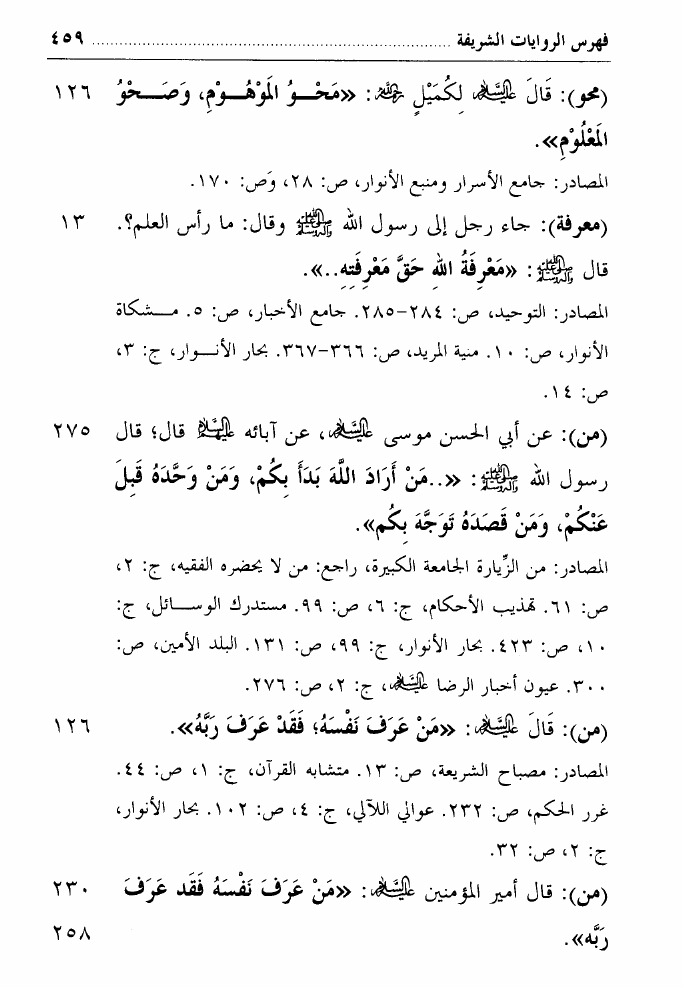 فهرس الروايات الشريفة ........................................ ٤٥٩
(محو): قَالَ عليه السلام لِكُمَيْلٍ رحمه الله: «مَحْـــوُ المَوْهُـــوْمِ، وَصَـــحْوُ ١٢٦
المَعْلُوْمِ».
المصادر: جامع الأسرار ومنبع الأنوار، ص: ٢٨، وَص: ١٧٠.
(معرفة): جاء رجل إلى رسول الله صلى الله عليه وآله وسلم وقال: ما رأس العلم؟. ١٣
قال صلى الله عليه وآله وسلم: «مَعْرِفَةُ اللهِ حَقَّ مَعْرِفَتِهِ..».
المصادر: التوحيد، ص: ٢٨٤–٢٨٥. جامع الأخبار، ص: ٥. مـــشكاة
الأنوار، ص: ١٠. منية المريد، ص: ٣٦٦–٣٦٧. بحار الأنـــوار، ج: ٣،
ص: ١٤.
(من): عن أبي الحسن موسى عليه السلام، عن آبائه عليهم السلام قال؛ قال ٢٧٥
رسول الله صلى الله عليه وآله وسلم: «..مَنْ أَرَادَ اللَّهَ بَدَأَ بِكُمْ، وَمَنْ وَحَّدَهُ قَبِلَ
عَنْكُمْ، وَمَنْ قَصَدَهُ تَوَجَّهَ بِكُم».
المصادر: من الزِّيارة الجامعة الكبيرة، راجع: من لا يحضره الفقيه، ج: ٢،
ص: ٦١. تهذيب الأحكام، ج: ٦، ص: ٩٩. مستدرك الوســـائل، ج:
١٠، ص: ٤٢٣. بحار الأنوار، ج: ٩٩، ص: ١٣١. البلد الأمين، ص:
٣٠٠. عيون أخبار الرضا عليه السلام، ج: ٢، ص: ٢٧٦.
(من): قَالَ عليه السلام: «مَنْ عَرَفَ نَفْسَهُ؛ فَقَدْ عَرَفَ رَبَّهُ». ١٢٦
المصادر: مصباح الشريعة، ص: ١٣. متشابه القرآن، ج: ١، ص: ٤٤.
غرر الحكم، ص: ٢٣٢. عوالي اللآلي، ج: ٤، ص: ١٠٢. بحار الأنوار،
ج: ٢، ص: ٣٢.
(من): قال أمير المؤمنين عليه السلام: «مَنْ عَرَفَ نَفْسَهُ فَقَد عَرَفَ ٢٣٠
رَبَّه». ٢٥٨